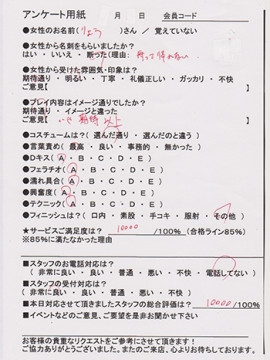 アンケート用紙　　月　　日　会員コード
●女性のお名前(りょう)さん　／　覚えていない
●女性から名刺をもらいましたか？
はい・いいえ・断った(理由：持って帰れない)
●女性から受けた雰囲気・印象は？
期待通り・明るい・丁寧・礼儀正しい・ガッカリ・不快
ご意見【　　】
●プレイ内容はイメージ通りでしたか？
期待通り・イメージと違った
ご意見【いい　期待以上】
●コスチュームは？(選んだ通り・選んだのと違う)
●言葉責め(最高・良い・事務的・無かった)
●Dキス(A・B・C・D・E)
●フェラチオ(A・B・C・D・E)
●濡れ具合(A・B・C・D・E)
●興奮度(A・B・C・D・E)
●テクニック(A・B・C・D・E)
●フィニッシュは？(口内・素股・手コキ・服射・その他)
★サービスご満足度は？　10000　/100%　(合格ライン85%)
※85%に満たなかった理由
■スタッフのお電話対応は？
(非常に良い・良い・普通・悪い・不快・電話してない)
■スタッフの受付対応は？
(非常に良い・良い・普通・悪い・不快)
■本日対応させて頂きましたスタッフの総合評価は？　10000　/100%
■イベントなどのご意見、ご要望を是非お聞かせ下さい
お客様の貴重なリクエストをご参考にさせて頂きます！
ご協力ありがとうございました。またのご来店、心よりお待ちしております。